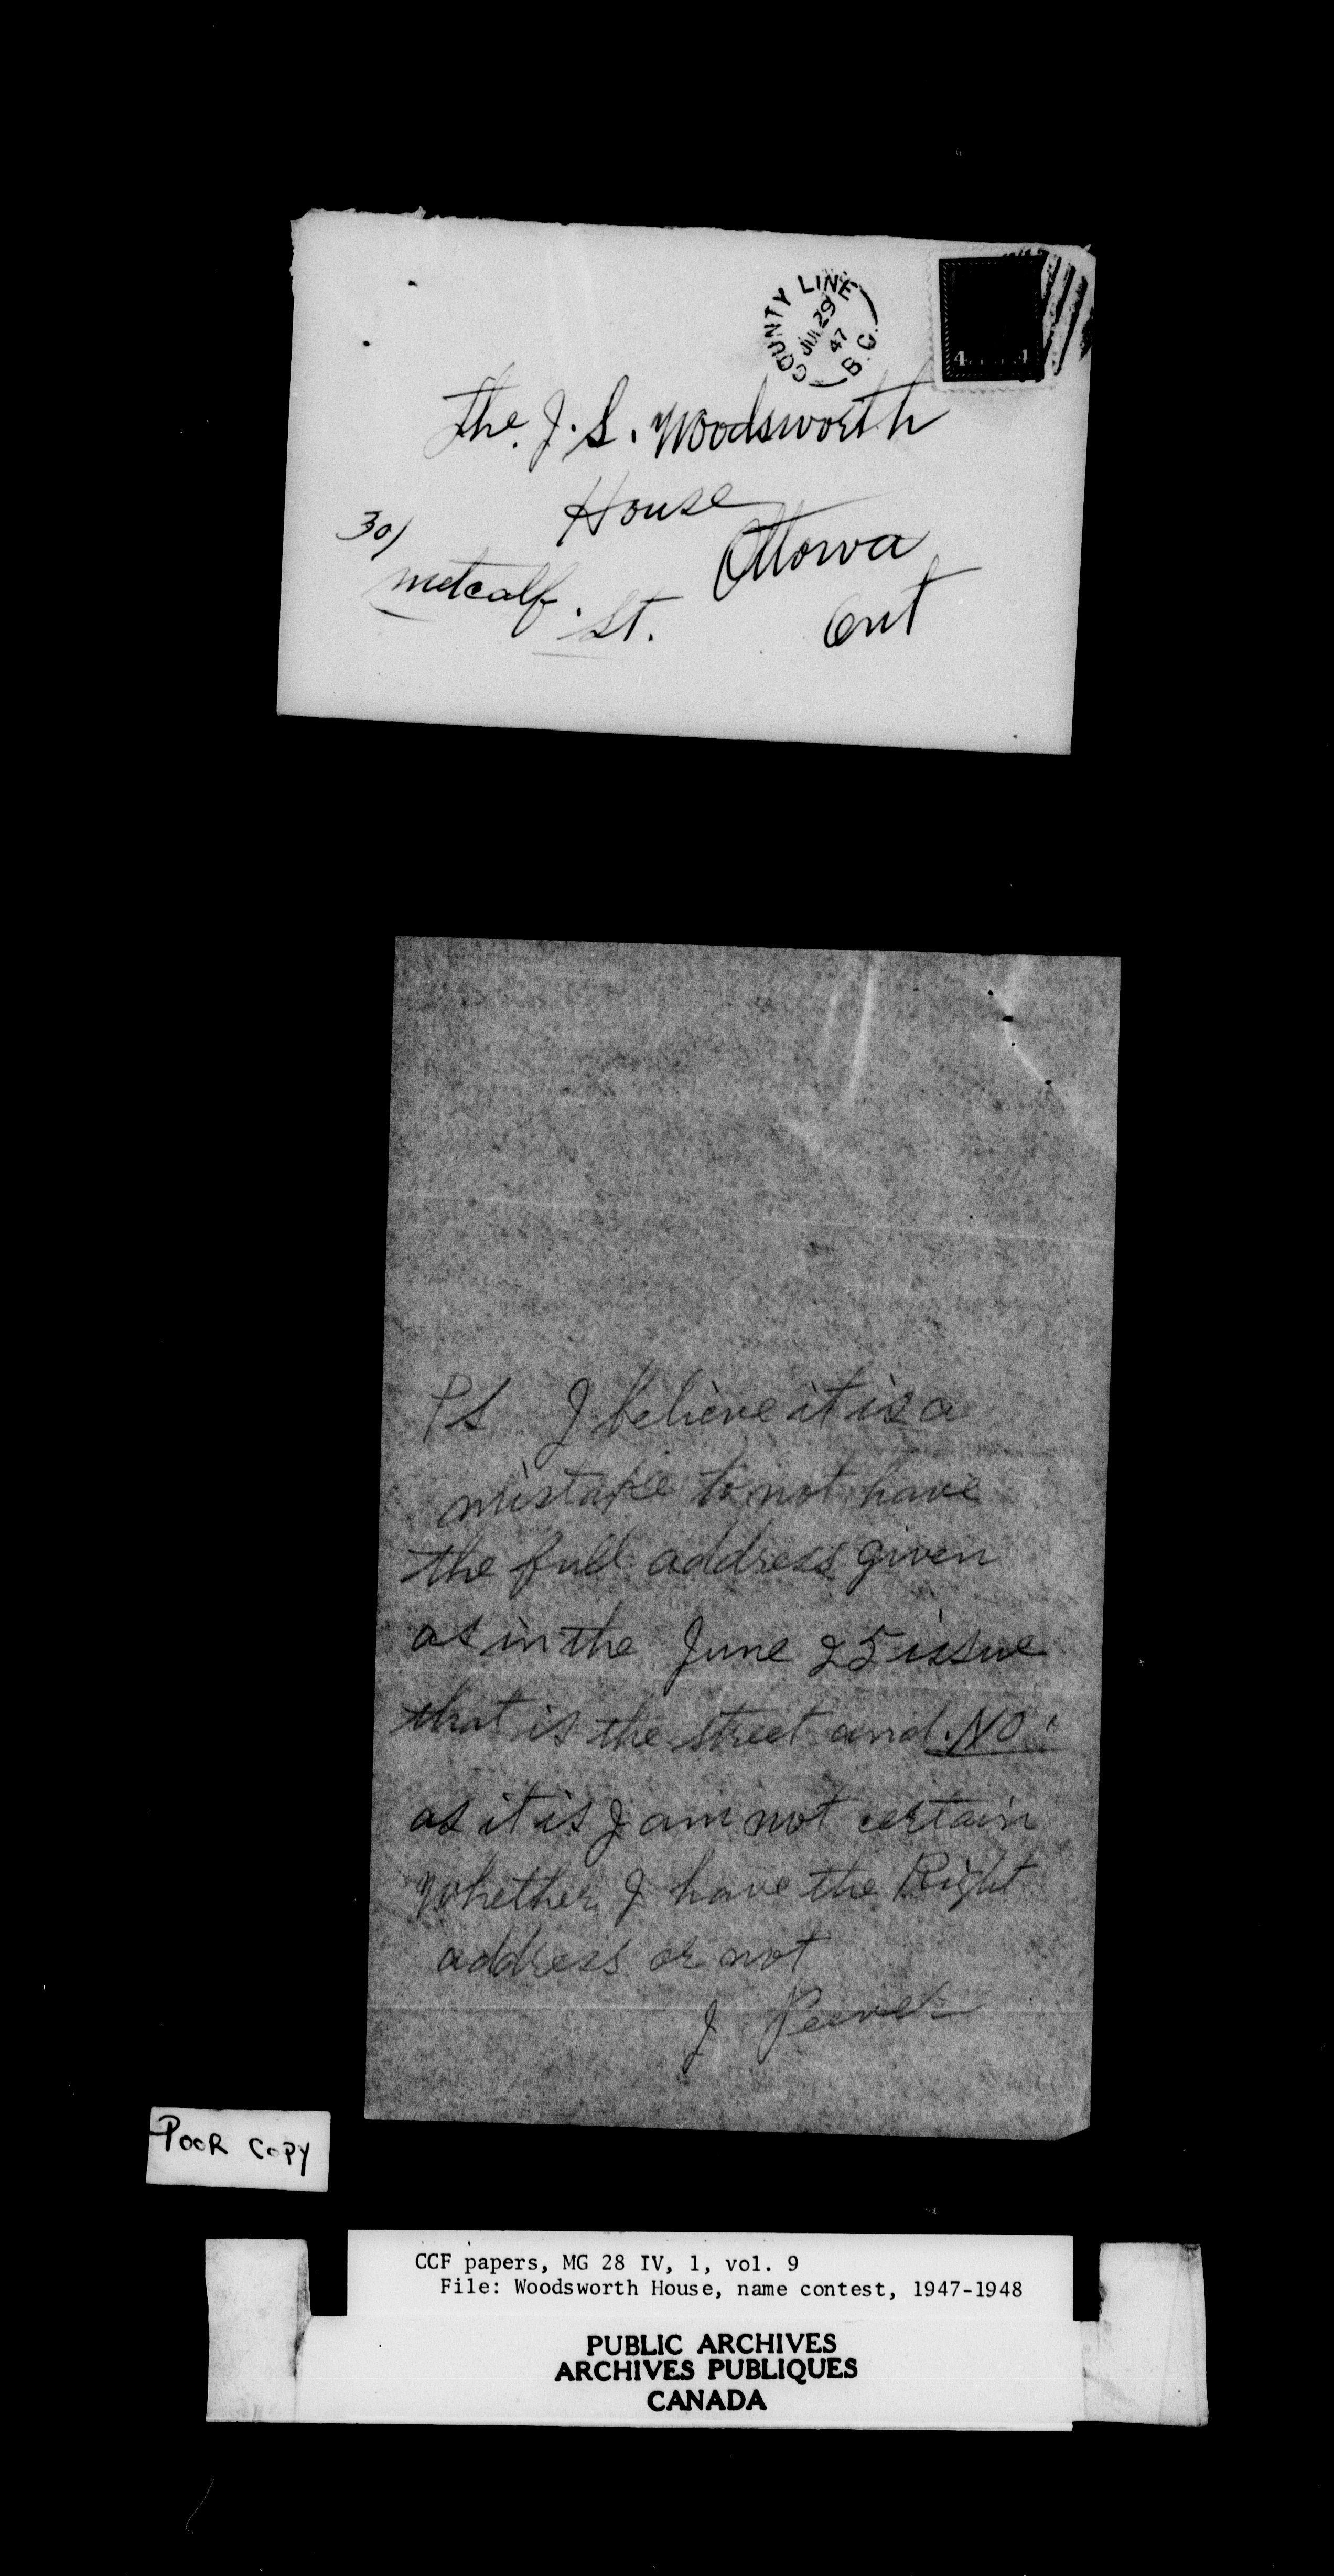 COUNTY LINE
JUL 29
47
B.C.
4 4
The J. S. Woodsworth
House
301
Ottowa
Metcalf. St.
Ont
PS I believe it is a
mistake to not have
the full address given
as in the June 25 issue
that is the street and .NO.
as it is I am not certain
Whether I have the Right
address or not
J Peever
POOR COPY
CCF papers, MG 28 IV, 1, vol. 9
File: Woodsworth House, name contest, 1947-1948
PUBLIC ARCHIVES
ARCHIVES PUBLIQUES
CANADA